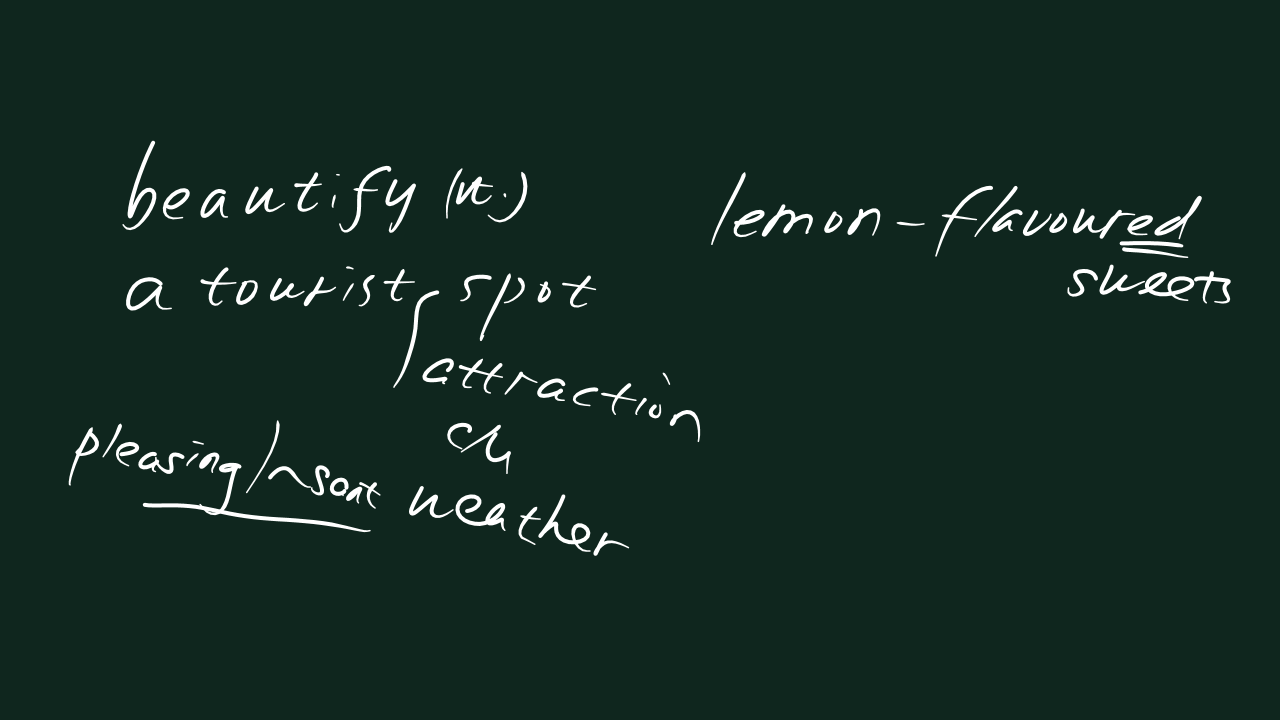 beautify (vt.)
a tourist spot
attraction
pleasing/~sant weather
lemon-flavoured
sweets